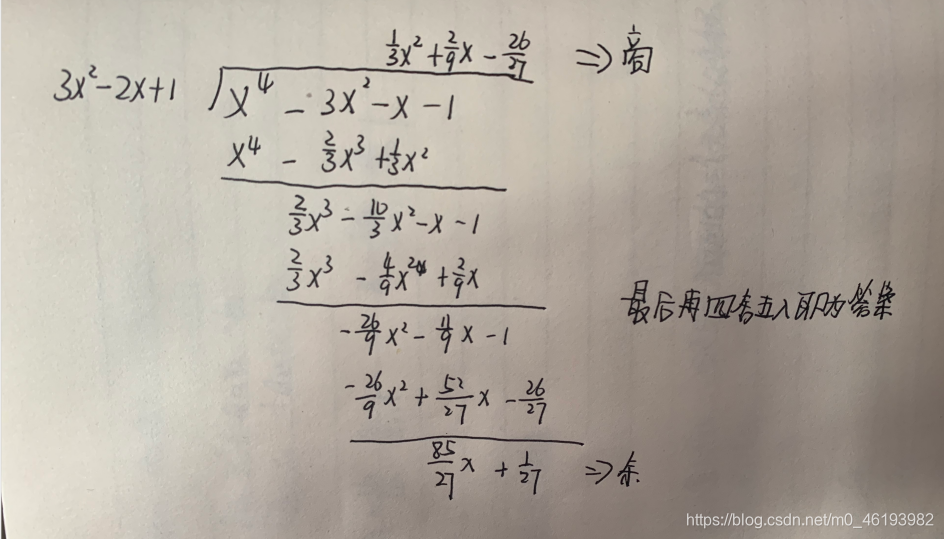 1/3x² + 2/9x - 26/27 ⇒ 商
3x² - 2x + 1 ) x⁴ - 3x² - x - 1
x⁴ - 2/3x³ + 1/3x²
2/3x³ - 10/3x² - x - 1
2/3x³ - 4/9x² + 2/9x
最后再四舍五入即为答案
-26/9x² - 11/9x - 1
-26/9x² + 52/27x - 26/27
85/27x + 1/27 ⇒ 余
https://blog.csdn.net/m0_46193982